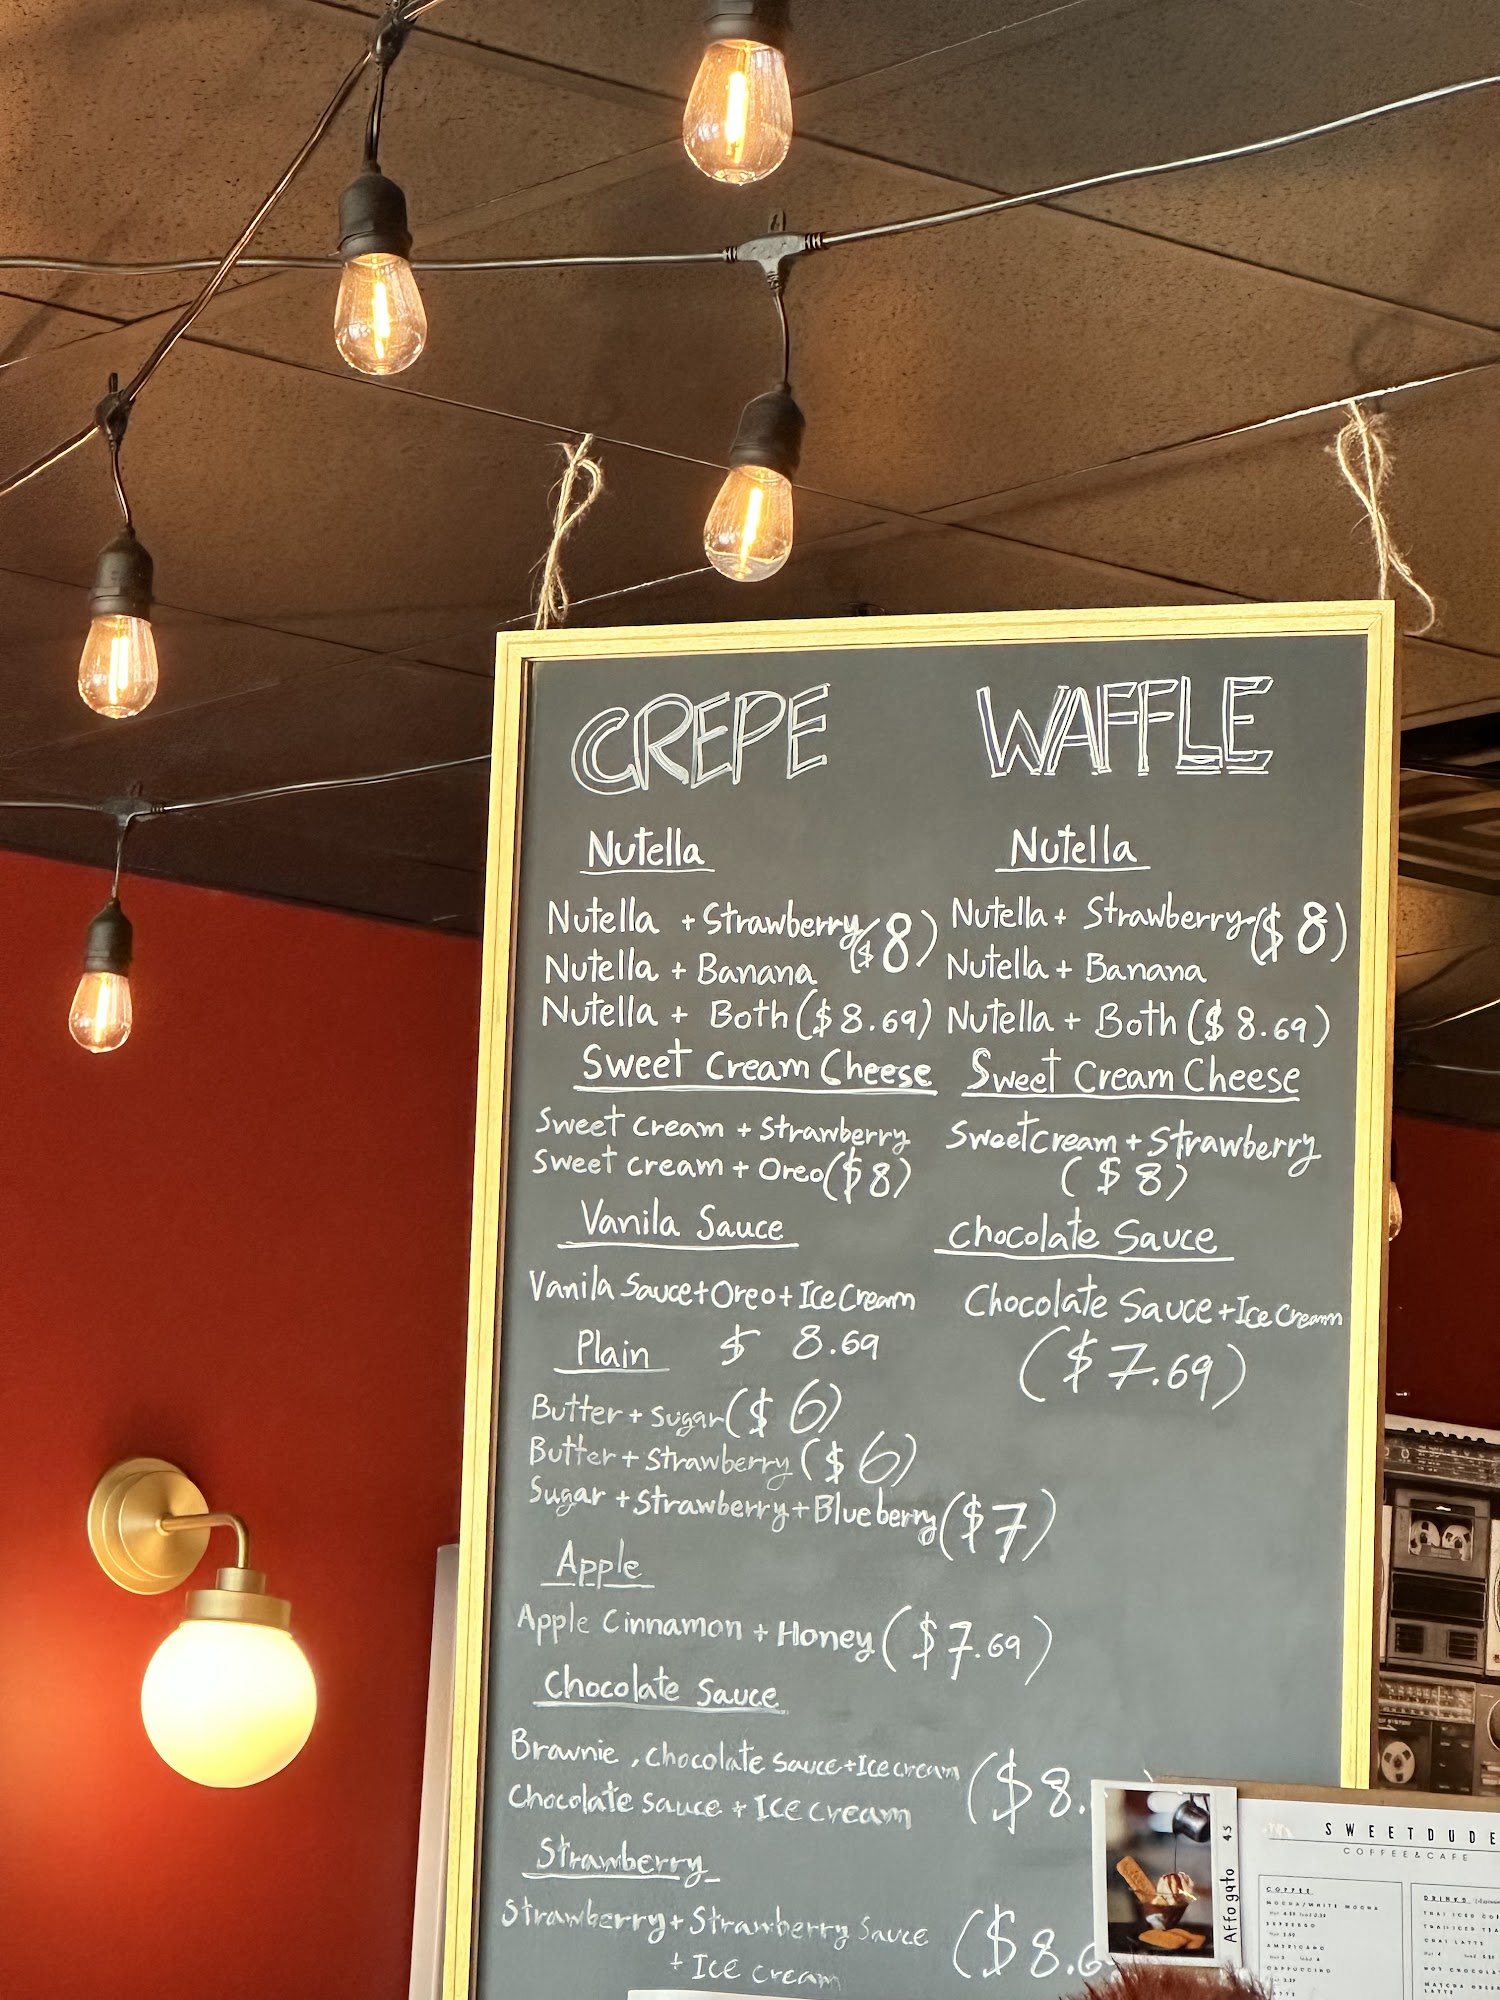 CREPE
Nutella
Nutella + Strawberry ($8)
Nutella + Banana
Nutella + Both ($8.69)
Sweet Cream Cheese
Sweet Cream + Strawberry
Sweet Cream + Oreo ($8)
Vanila Sauce
Vanila Sauce + Oreo + Ice Cream
$ 8.69
Plain
Butter + Sugar ($6)
Butter + Strawberry ($6)
Sugar + Strawberry + Blueberry ($7)
Apple
Apple Cinnamon + Honey ($7.69)
Chocolate Sauce
Brownie, Chocolate Sauce + Ice cream ($8.
Chocolate Sauce + Ice cream
Strawberry
Strawberry + Strawberry Sauce
+ Ice cream ($8.6
WAFFLE
Nutella
Nutella + Strawberry ($8)
Nutella + Banana
Nutella + Both ($8.69)
Sweet Cream Cheese
Sweet Cream + Strawberry
($8)
Chocolate Sauce
Chocolate Sauce + Ice Cream
($7.69)
Affogato 45
SWEETDUDE
COFFEE&CAFE
COFFEE
MOCHA/WHITE MOCHA
ESPRESSO
AMERICANO
CAPPUCCINO
DRINKS
CHAI LATTE